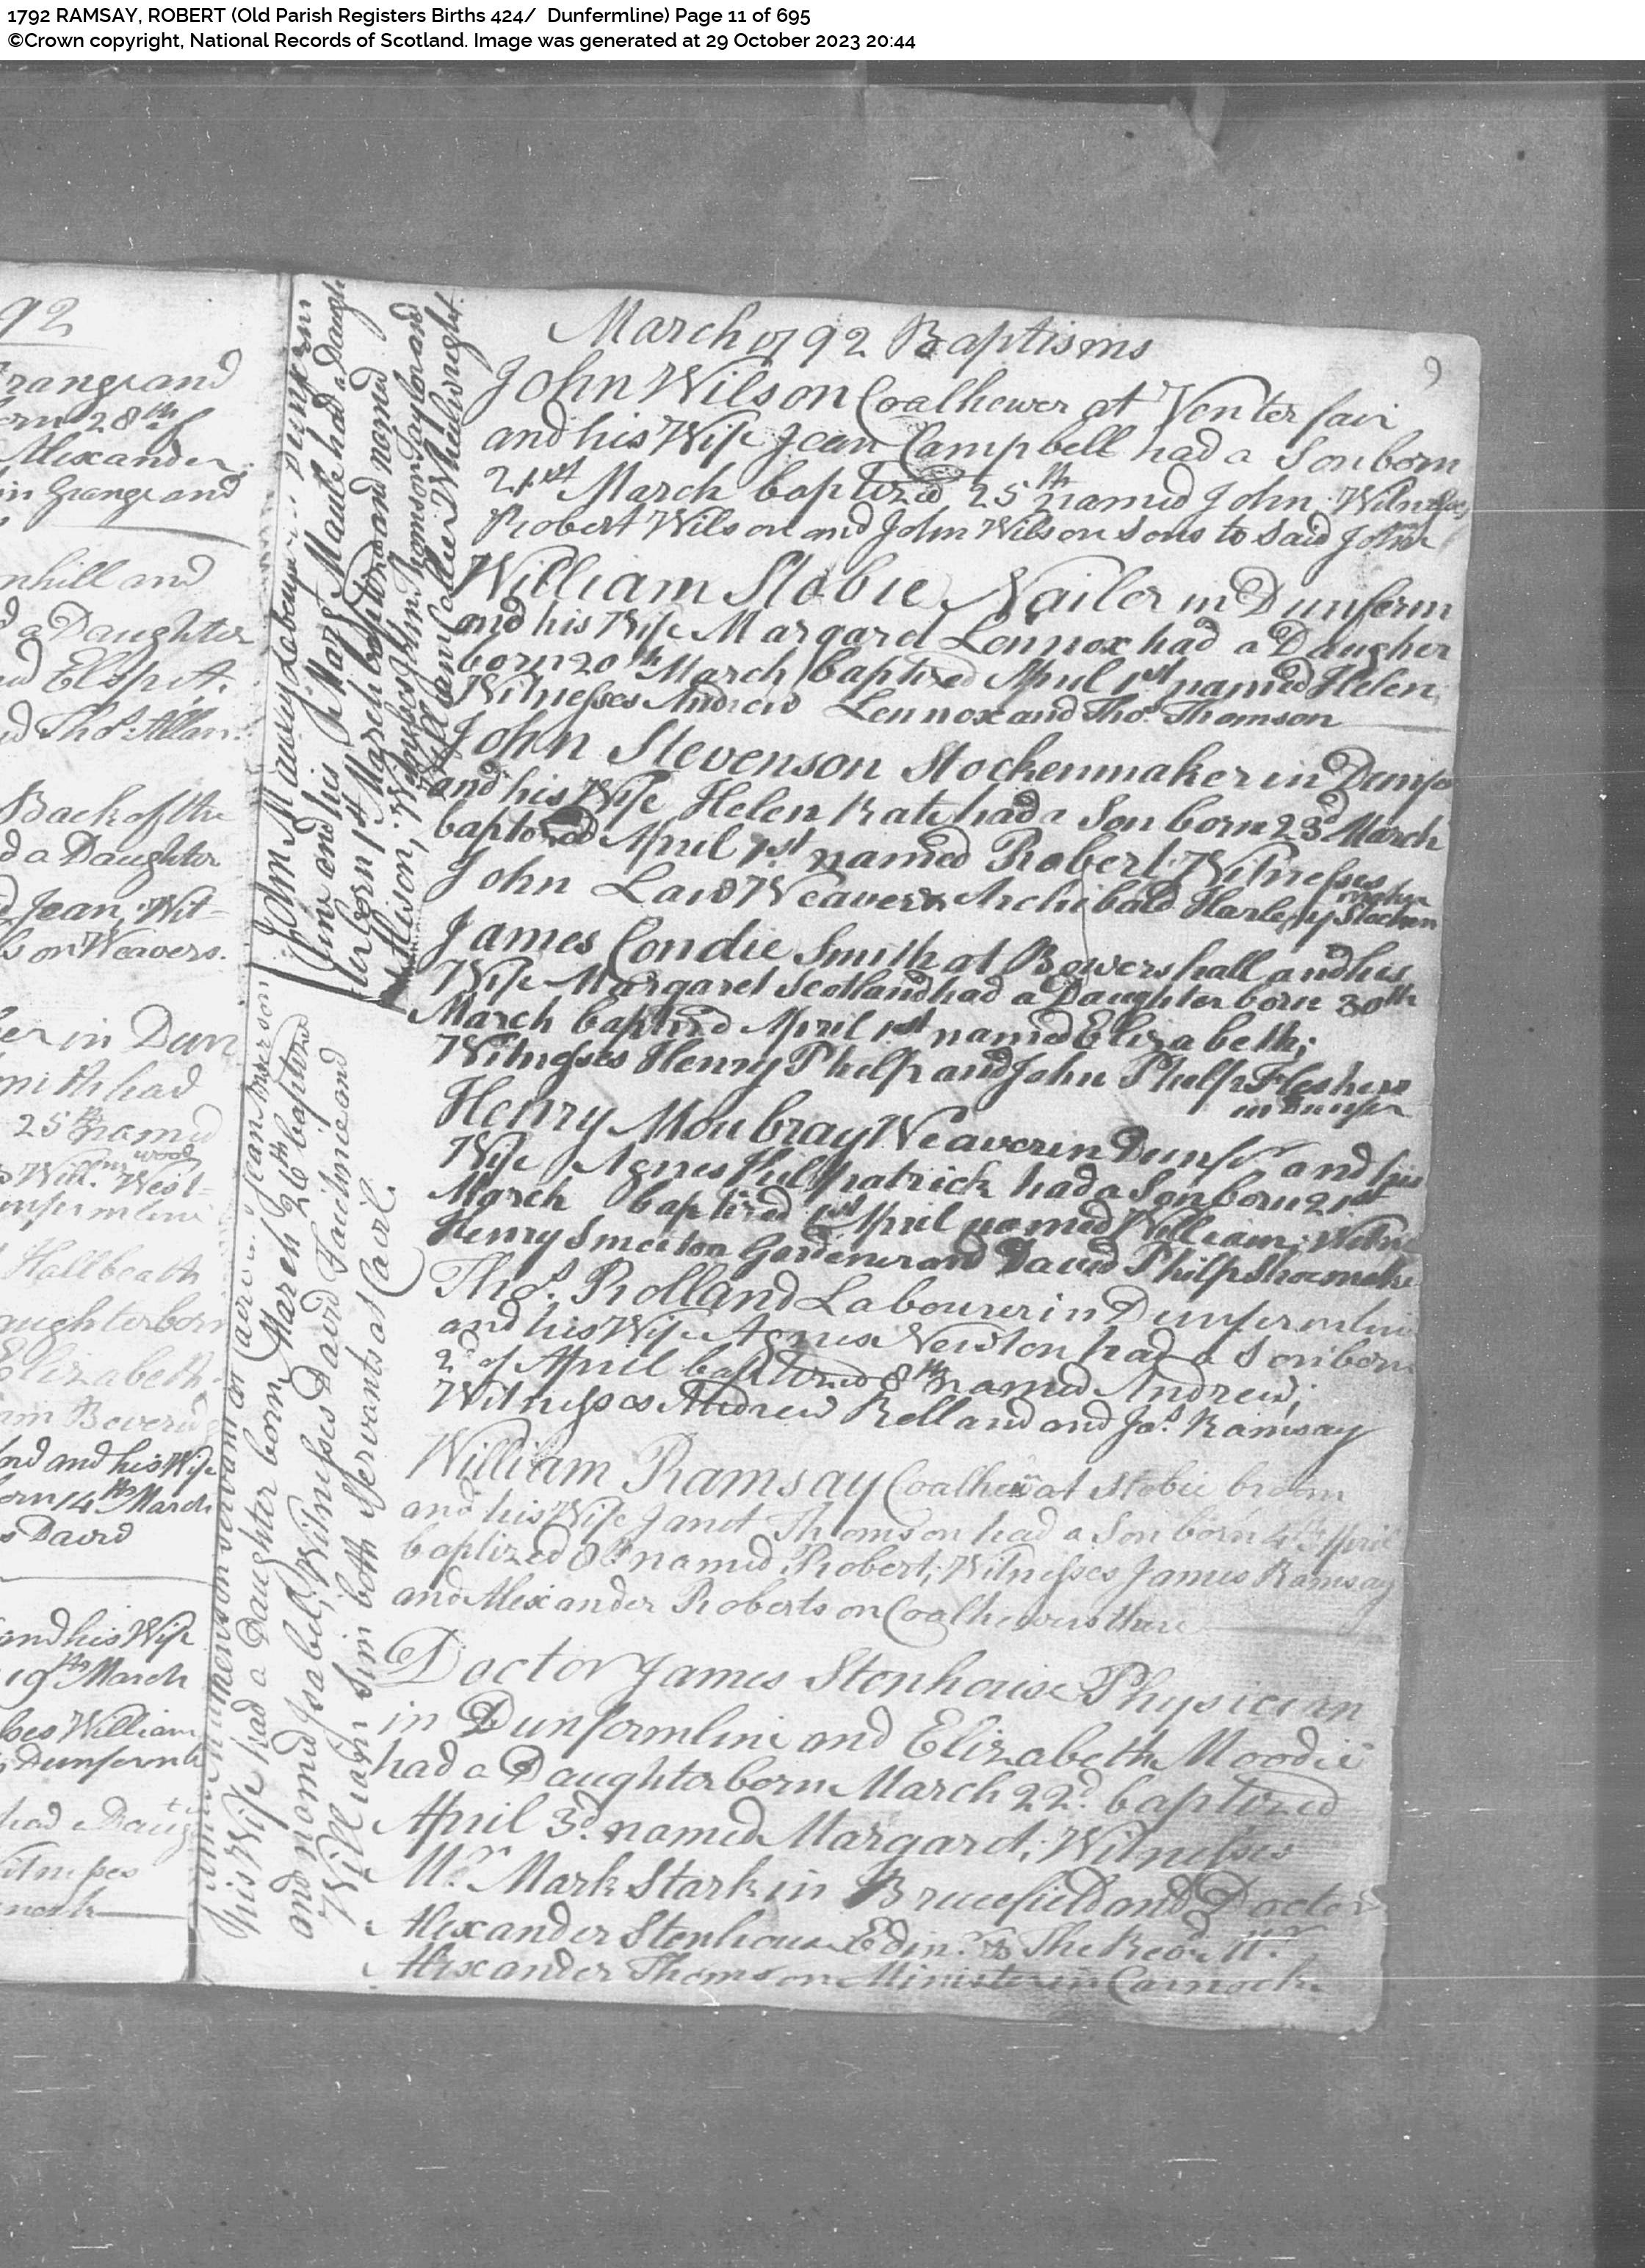 1792 RAMSAY, ROBERT (Old Parish Registers Births 424/ Dunfermline) Page 11 of 695
©Crown copyright, National Records of Scotland. Image was generated at 29 October 2023 20:44
92
Grange and
born 28th of
Alexander
in Grange and
nhill and
d a Daughter
Elspit;
Thos. Allan.
Back of the
d a Daughter
d Jean; Wit-
son Weavers.
er in Dun
had
25th named
wood
Will. West-
Hallbeath
aughter born
Elizabeth
Beverid
and his Wife
born 14th March
David
and his Wife
19th March
William
Dunfermli
had a Daug
Witnesses
John Mausey Labourer
June and his Mary Maule had a Daugh
ter born 1st March baptized and named
Alison; Witnesses John Thomson Taylor and
William Wheelwright
servant at Jean Anderson
his Wife had a Daughter born March 26th baptized
and named Isabel; Witnesses David and
William Sim both Servants at Cavil.
March 1792 Baptisms
9
John Wilson Coalhewer at Venterfair
and his Wife Jean Campbell had a Son born
21st March baptized 25th named John. Witnesses
Robert Wilson and John Wilson Sons to said John
William Stobie Nailer in Dunferm
and his Wife Margaret Lennox had a Daugher
born 20th March baptized April 1st named Helen;
Witnesses Andrew Lennox and Tho. Thomson
John Stevenson Stockenmaker in Dunfe
and his Wife Helen Kate had a Son born 23d March
baptized April 1st named Robert; Witnesses
John Law Weaver & Archibald Harley Stocken
maker
James Condie Smith at Bowershall and his
Wife Margaret Scotland had a Daughter born 30th
March baptized April 1st named Elizabeth;
Witnesses Henry Phelp and John Phelp Fleshers
in Dunfer
Henry Moubray Weaver in Dunfr and his
Wife Agnes Killpatrick had a Son born 21st
March baptized 1st April named William; Witne
Henry Smeeton Gardener and David Philp Shoemake
Thos. Rolland Labourer in Dunfermlin
and his Wife Agnes Newton had a Son born
2d of April baptized 8th named Andrew;
Witnesses Andrew Rolland and Jas. Ramsay
William Ramsay Coalhewr at Stobie broom
and his Wife Janet Thomson had a Son born 4th April
baptized 8th named Robert; Witnesses James Ramsay
and Alexander Robertson Coalhewers there
Doctor James Stenhouse Physician
in Dunfermline and Elizabeth Moodie
had a Daughter born March 22d. baptized
April 3d. named Margaret; Witnesses
Mr. Mark Stark in Brucefield and Doctor
Alexander Stenhouse Edinr. & The Revd. Mr.
Alexander Thomson Minister in Carnock.